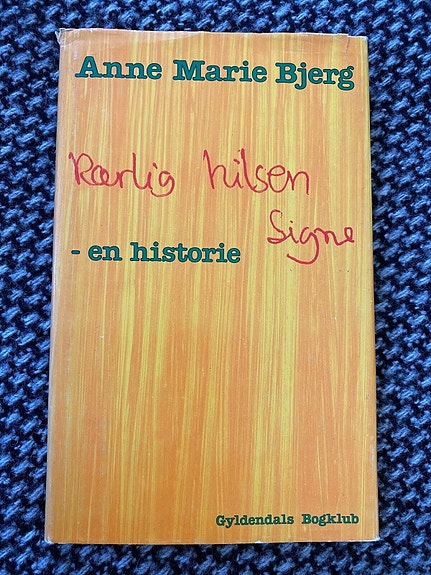 Anne Marie Bjerg
Kærlig hilsen
Signe
- en historie
Gyldendals Bogklub